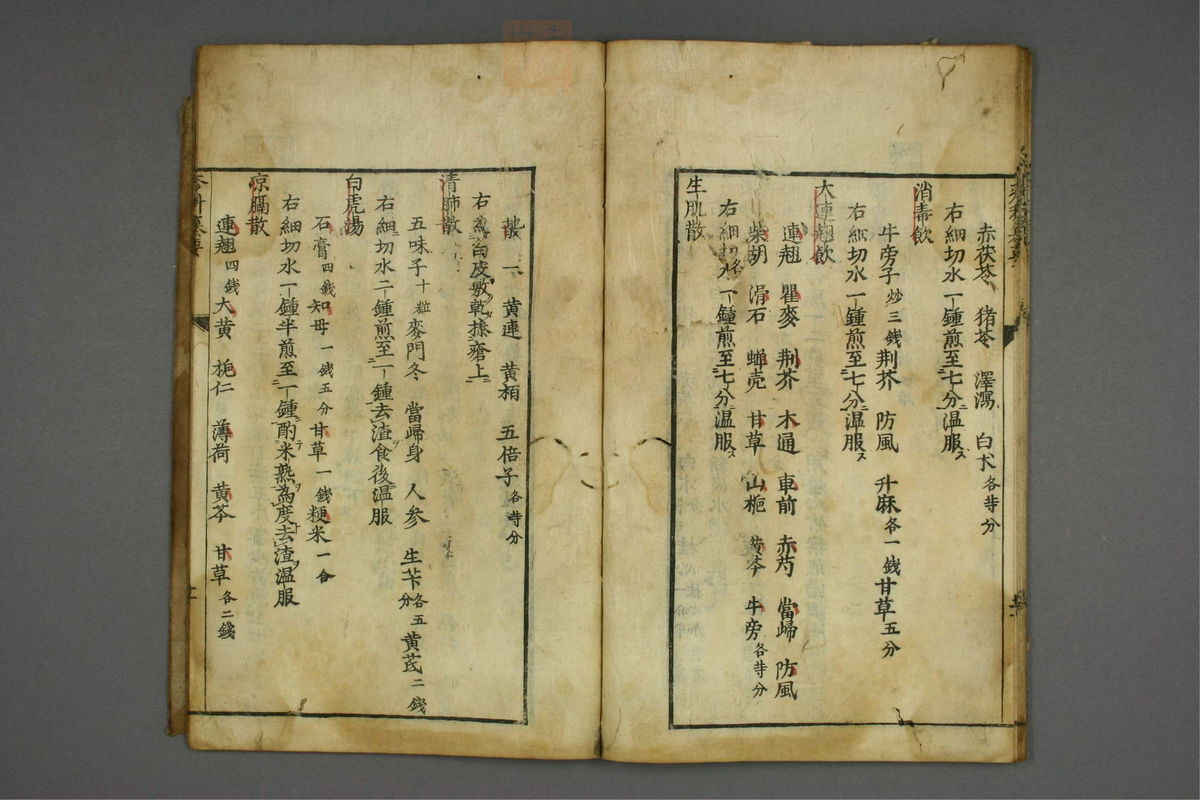 赤茯苓 猪苓 澤瀉 白朮各等分
右細切水一鍾煎至七八分温服
消毒飲
牛旁子炒三錢荆芥 防風 升麻各一錢甘草五分
右細切水一鍾煎至七八分温服
大連翹飲
連翹 瞿麥 荆芥 木通 車前 赤芍 當歸 防風
柴胡 滑石 蝉壳 甘草 山梔 黄芩 牛旁各等分
右細切水一鍾煎至七八分温服
生肌散
散 一 黄連 黄栢 五倍子各等分
右為白皮敷乾摻瘡上
清肺散
五味子十粒麥門冬 當歸身 人参 生苄各五分黄芪二錢
右細切水二鍾煎至一鍾去渣食後温服
白虎湯
石膏四錢知母一錢五分甘草一錢粳米一合
右細切水一鍾半煎至一鍾酌米熟為度去渣温服
凉膈散
連翹四錢大黄 梔仁 薄荷 黄芩 甘草各二錢